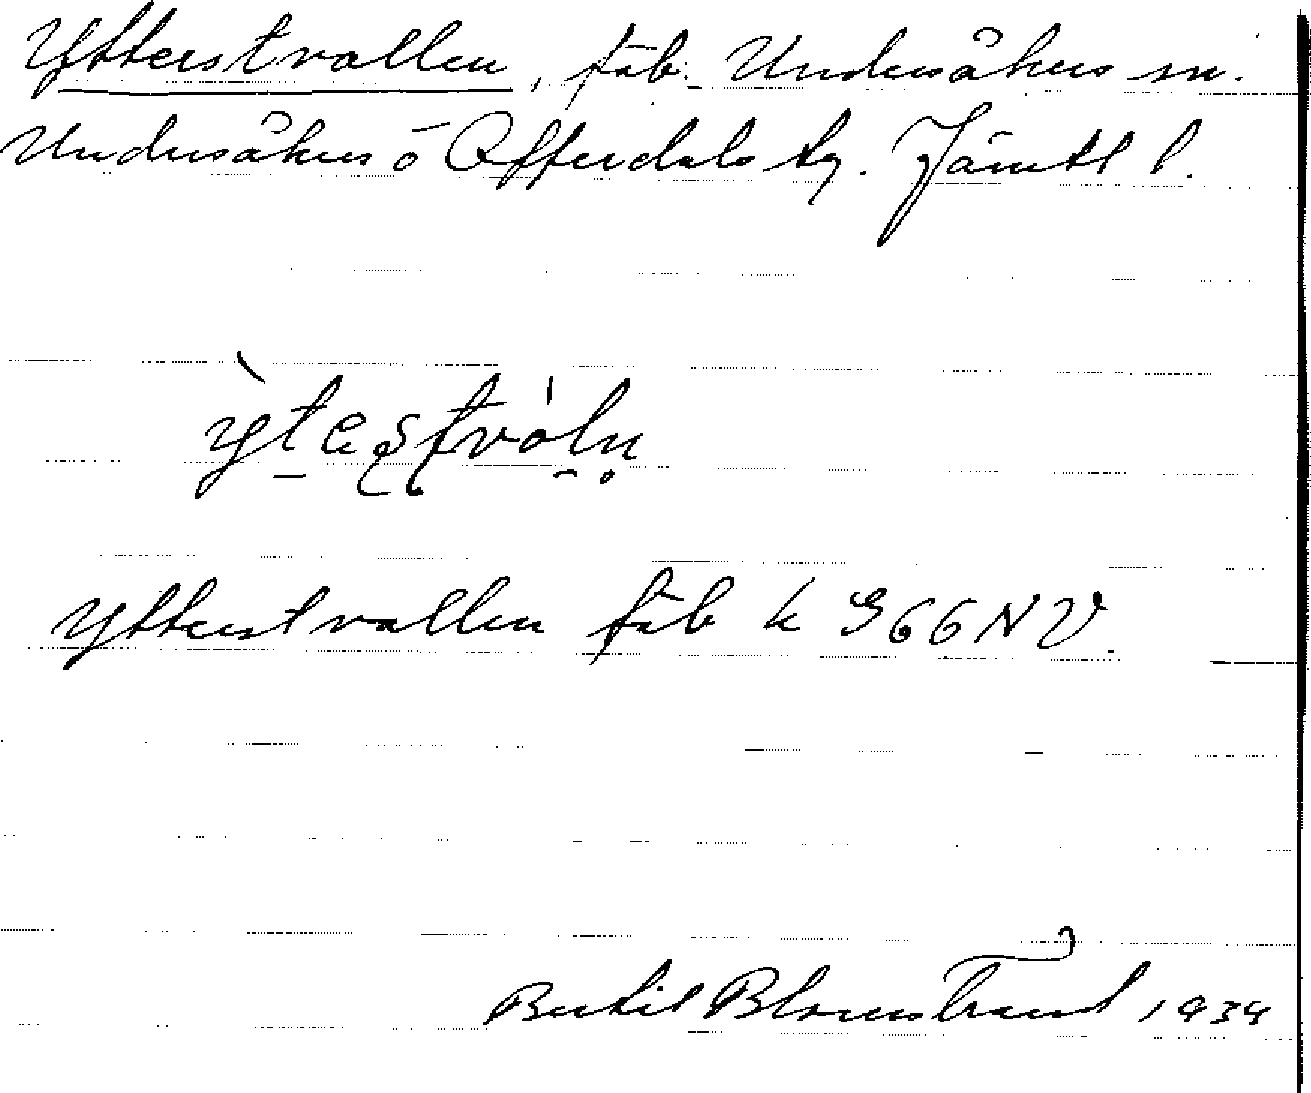 Ytterstvallen, fäb. Undersåkers sn.
Undersåkers o Offerdals tg. Jämtl l.
Ytterstvallen fäb k G66NV.
Bertil Blomstrand 1934